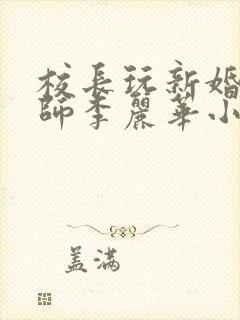 校長玩新婚
師李麗華小
盖满